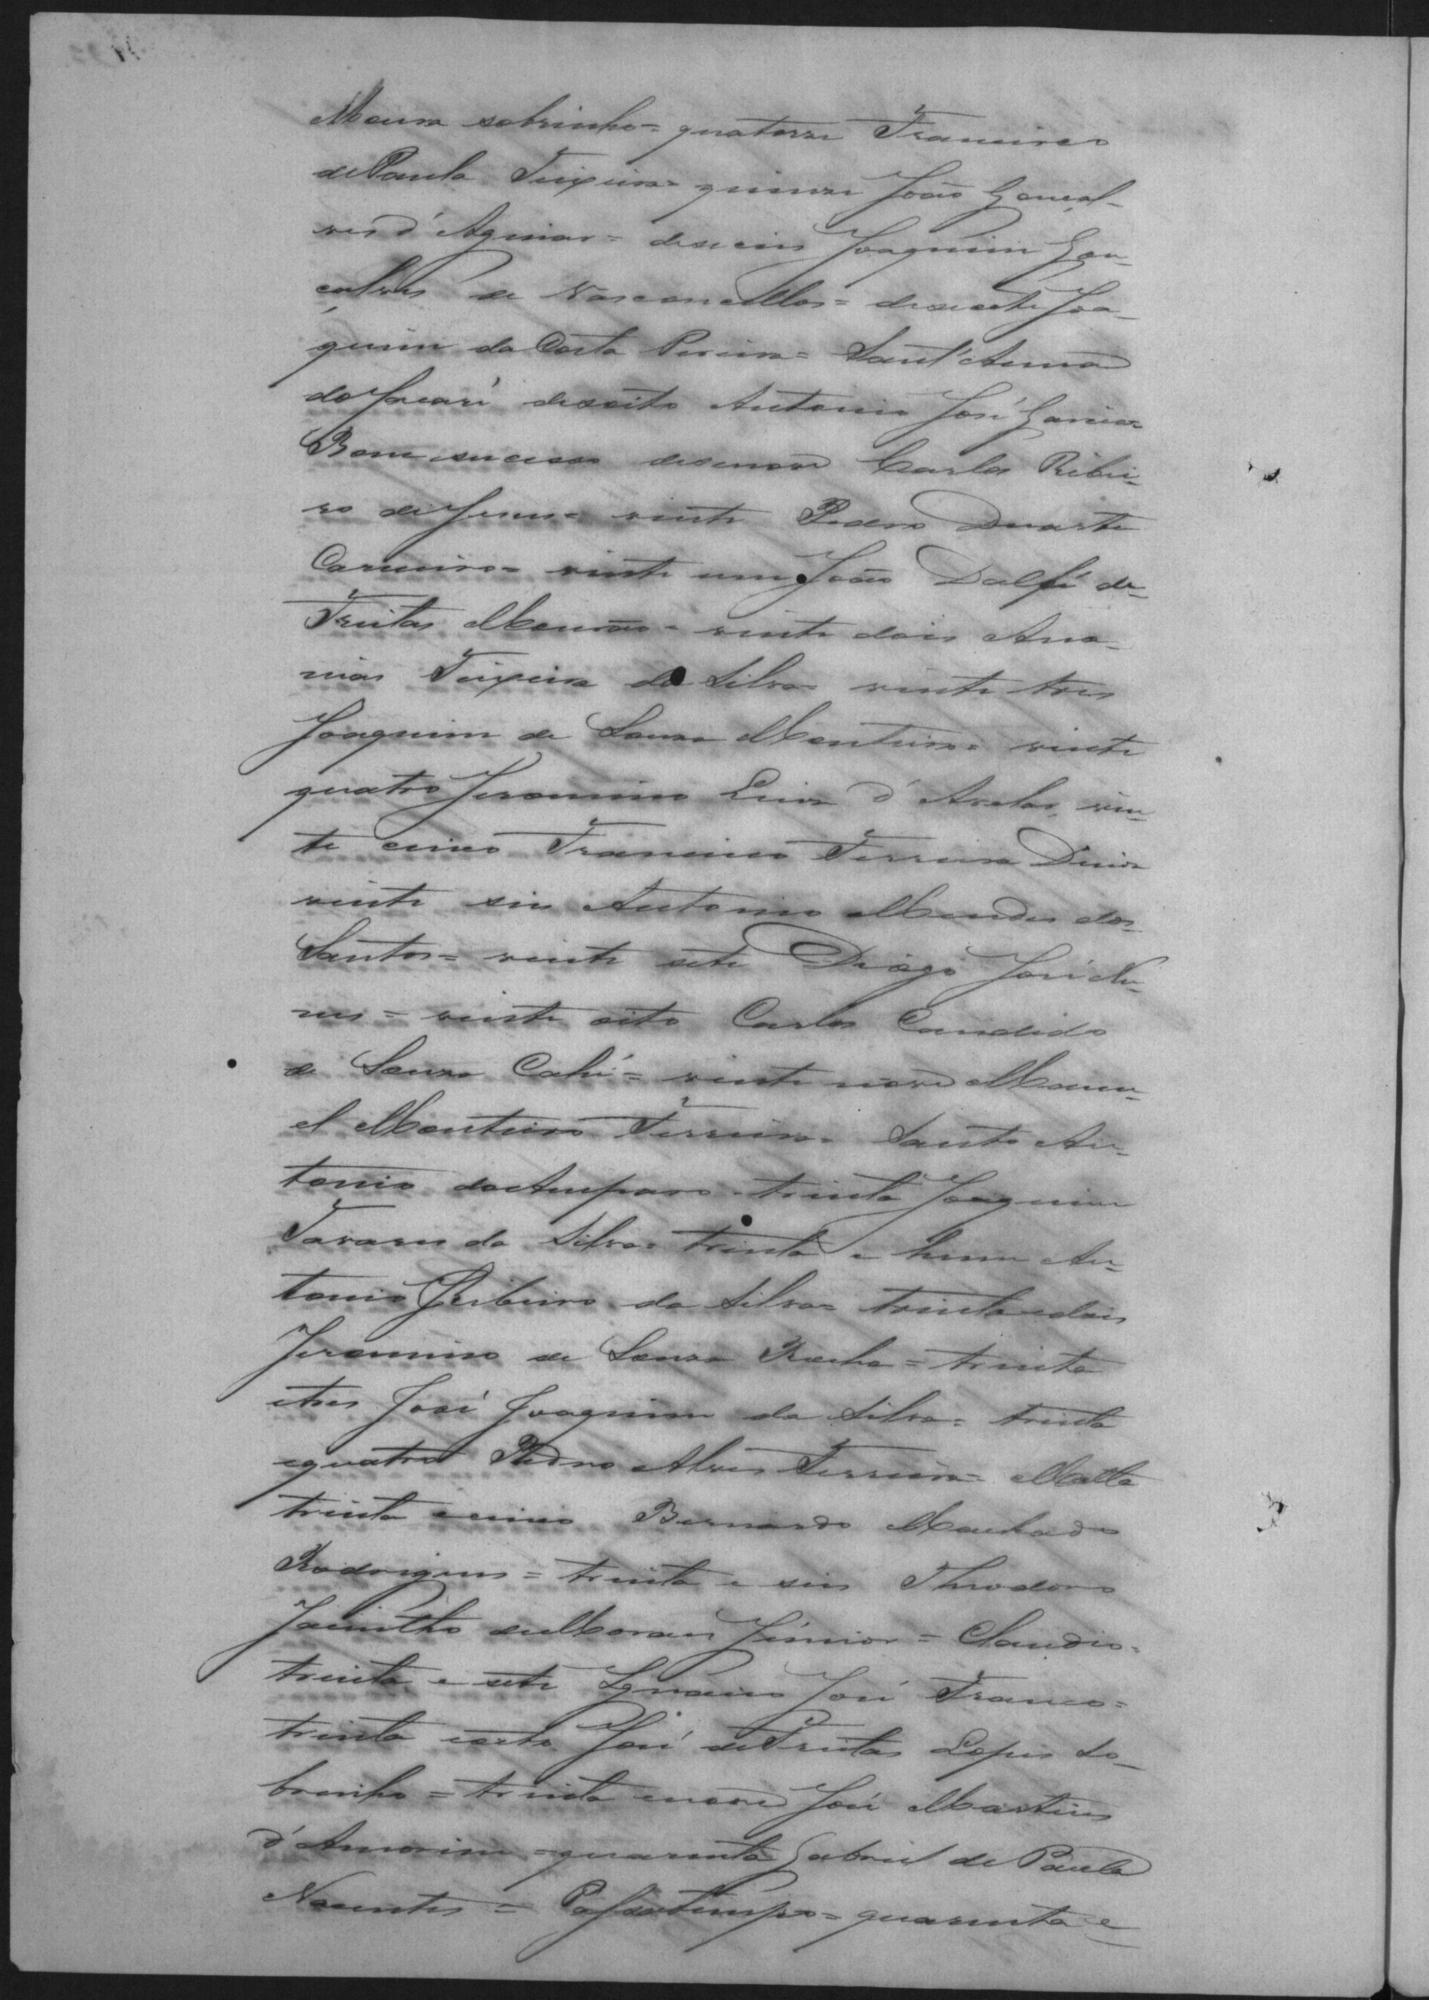 Moura sobrinho= quatorze Francisco
de Paula Teixeira= quinze João Gonçal-
ves d'Aguiar= deseceis Joaquim Gon-
çalves de Vasconcellos= desecete Joa-
quim da Costa Pereira= Sant'Anna
do Jacaré desoito Antonio José Garcia
Bom successo desenove Carlos Ribei-
ro de Jesus= vinte Pedro Duarte
Carneiro= vinte um João de
Freitas Mourão= vinte dois Ana-
nias Teixeira da Silva= vinte tres
Joaquim de Souza Monteiro= vinte
quatro Jeronimo Luiz d'Avelar, vin-
te cinco Francisco Ferreira Diniz
vinte seis Antonio Mendes dos
Santos= vinte sete Diogo José Nu-
nes= vinte oito Carlos Candido
de Souza = vinte nove Manu-
el Monteiro Ferreira= Santo An-
tonio do Amparo trinta Joaquim
Tavares da Silva= trinta e hum An-
tonio Ribeiro da Silva= trinta e dois
Jeronimo de Souza Rocha= trinta
e tres José Joaquim da Silva= trinta
e quatro Pedro Alves Ferreira= Matta
trinta e cinco Bernardo Machado
Rodrigues= trinta e seis Theodoro
Jacintho de Moraes Júnior= Claudio=
trinta e sete Ignacio José Franco=
trinta e oito José de Freitas Lopes So-
brinho= trinta e nove José Martins
d'Amorim= quarenta Gabriel de Paula
Navantes= Passatempo= quarenta e